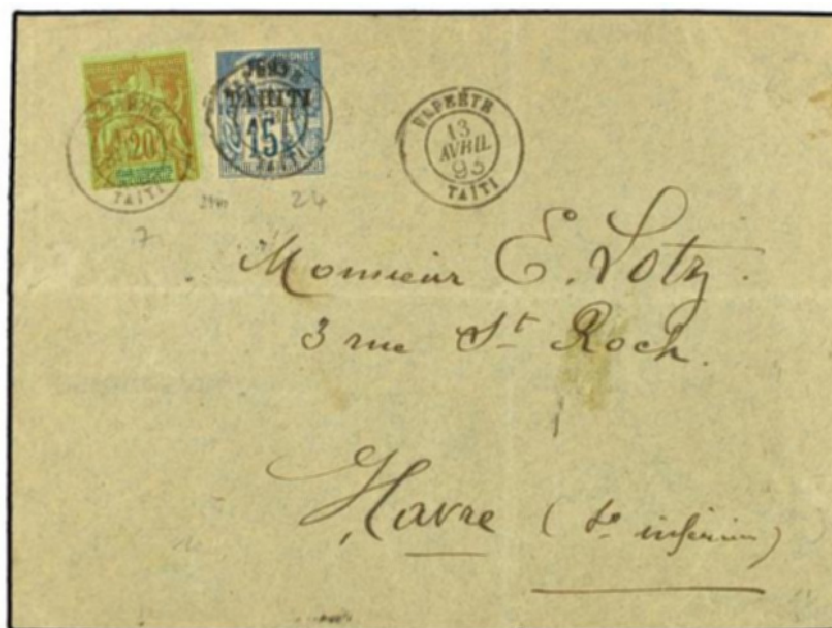 20
COLONIES
1893
TAHITI
15
TAÏTI
TAÏTI
PAPEETE
13
AVRIL
93
TAÏTI
7
24
Monsieur E. Lotz.
3 rue St Roch.
Havre (Se inférieure)